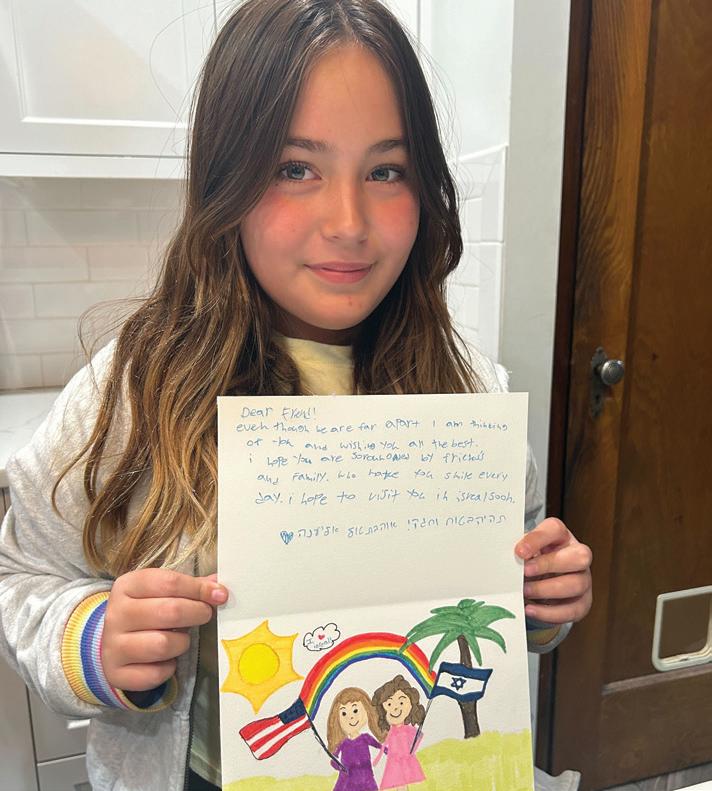 Dear Friend!
even though we are far apart I am thinking
of you and wishing you all the best.
i hope you are sorounded by friends
and family. who make you smile every
day. i hope to visit you in israel soon.
I ♥
israel!